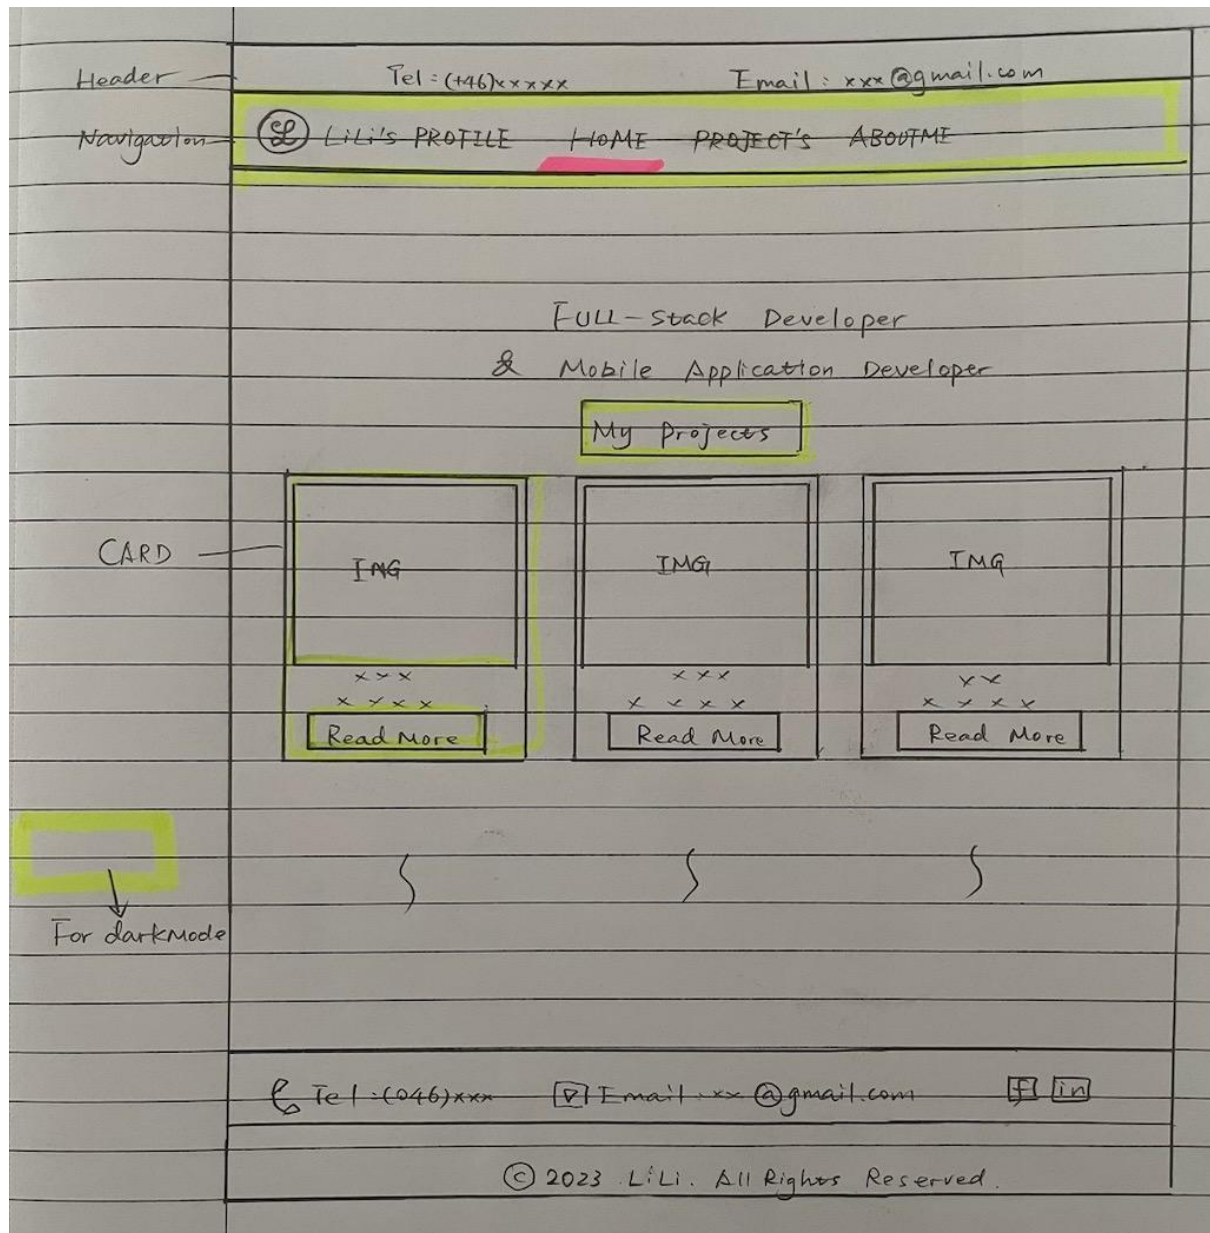 Header
Tel : (+46)xxxxx Email : xxx@gmail.com
Navigation
L LiLi's PROFILE HOME PROJECT's ABOUTME
FULL-Stack Developer
& Mobile Application Developer
My Projects
CARD
IMG IMG IMG
xxx xxx xx
xxxx xxxx xxxx
Read More Read More Read More
For darkmode
Tel :(046)xxx Email : xx @gmail.com f in
© 2023 LiLi. All Rights Reserved.